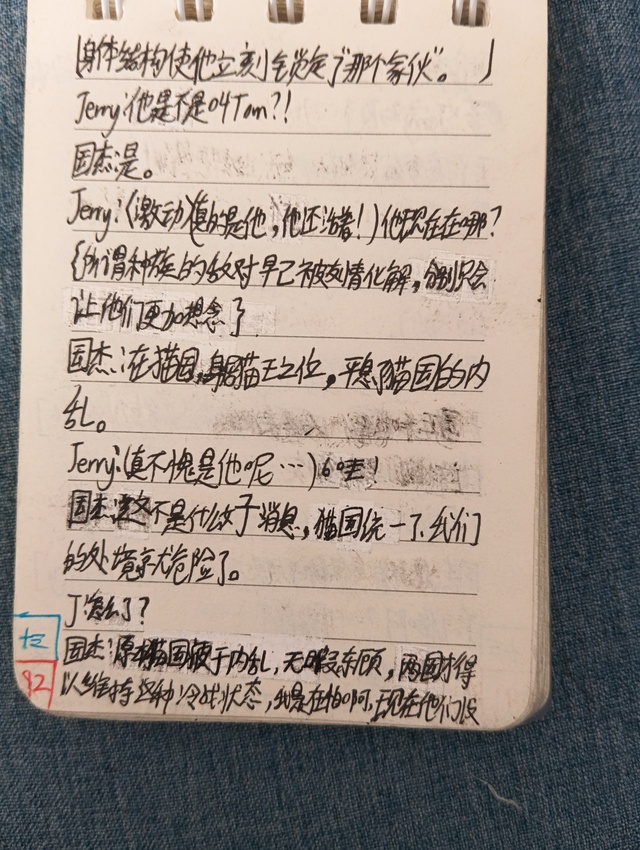 (身体结构使他立刻全锁定了“那个家伙”。)
Jerry:他是不是叫Tom?!
国杰:是。
Jerry:(激动)(真的是他,他还活着!)他现在在哪?
{所谓种族的敌对早已被友情化解,分别只会
让他们更加想念了
国杰:在猫国,身居猫王之位,平息了猫国的内
乱。
Jerry:(真不愧是他呢…)哇!
国杰:这不是什么好消息,猫国统一了,我们
的处境就危险了。
J:怎么了?
国杰:原本猫国便于内乱,无暇东顾,两国才得
以维持这种冷战状态,我是在怕啊,现在他们没
十三
82